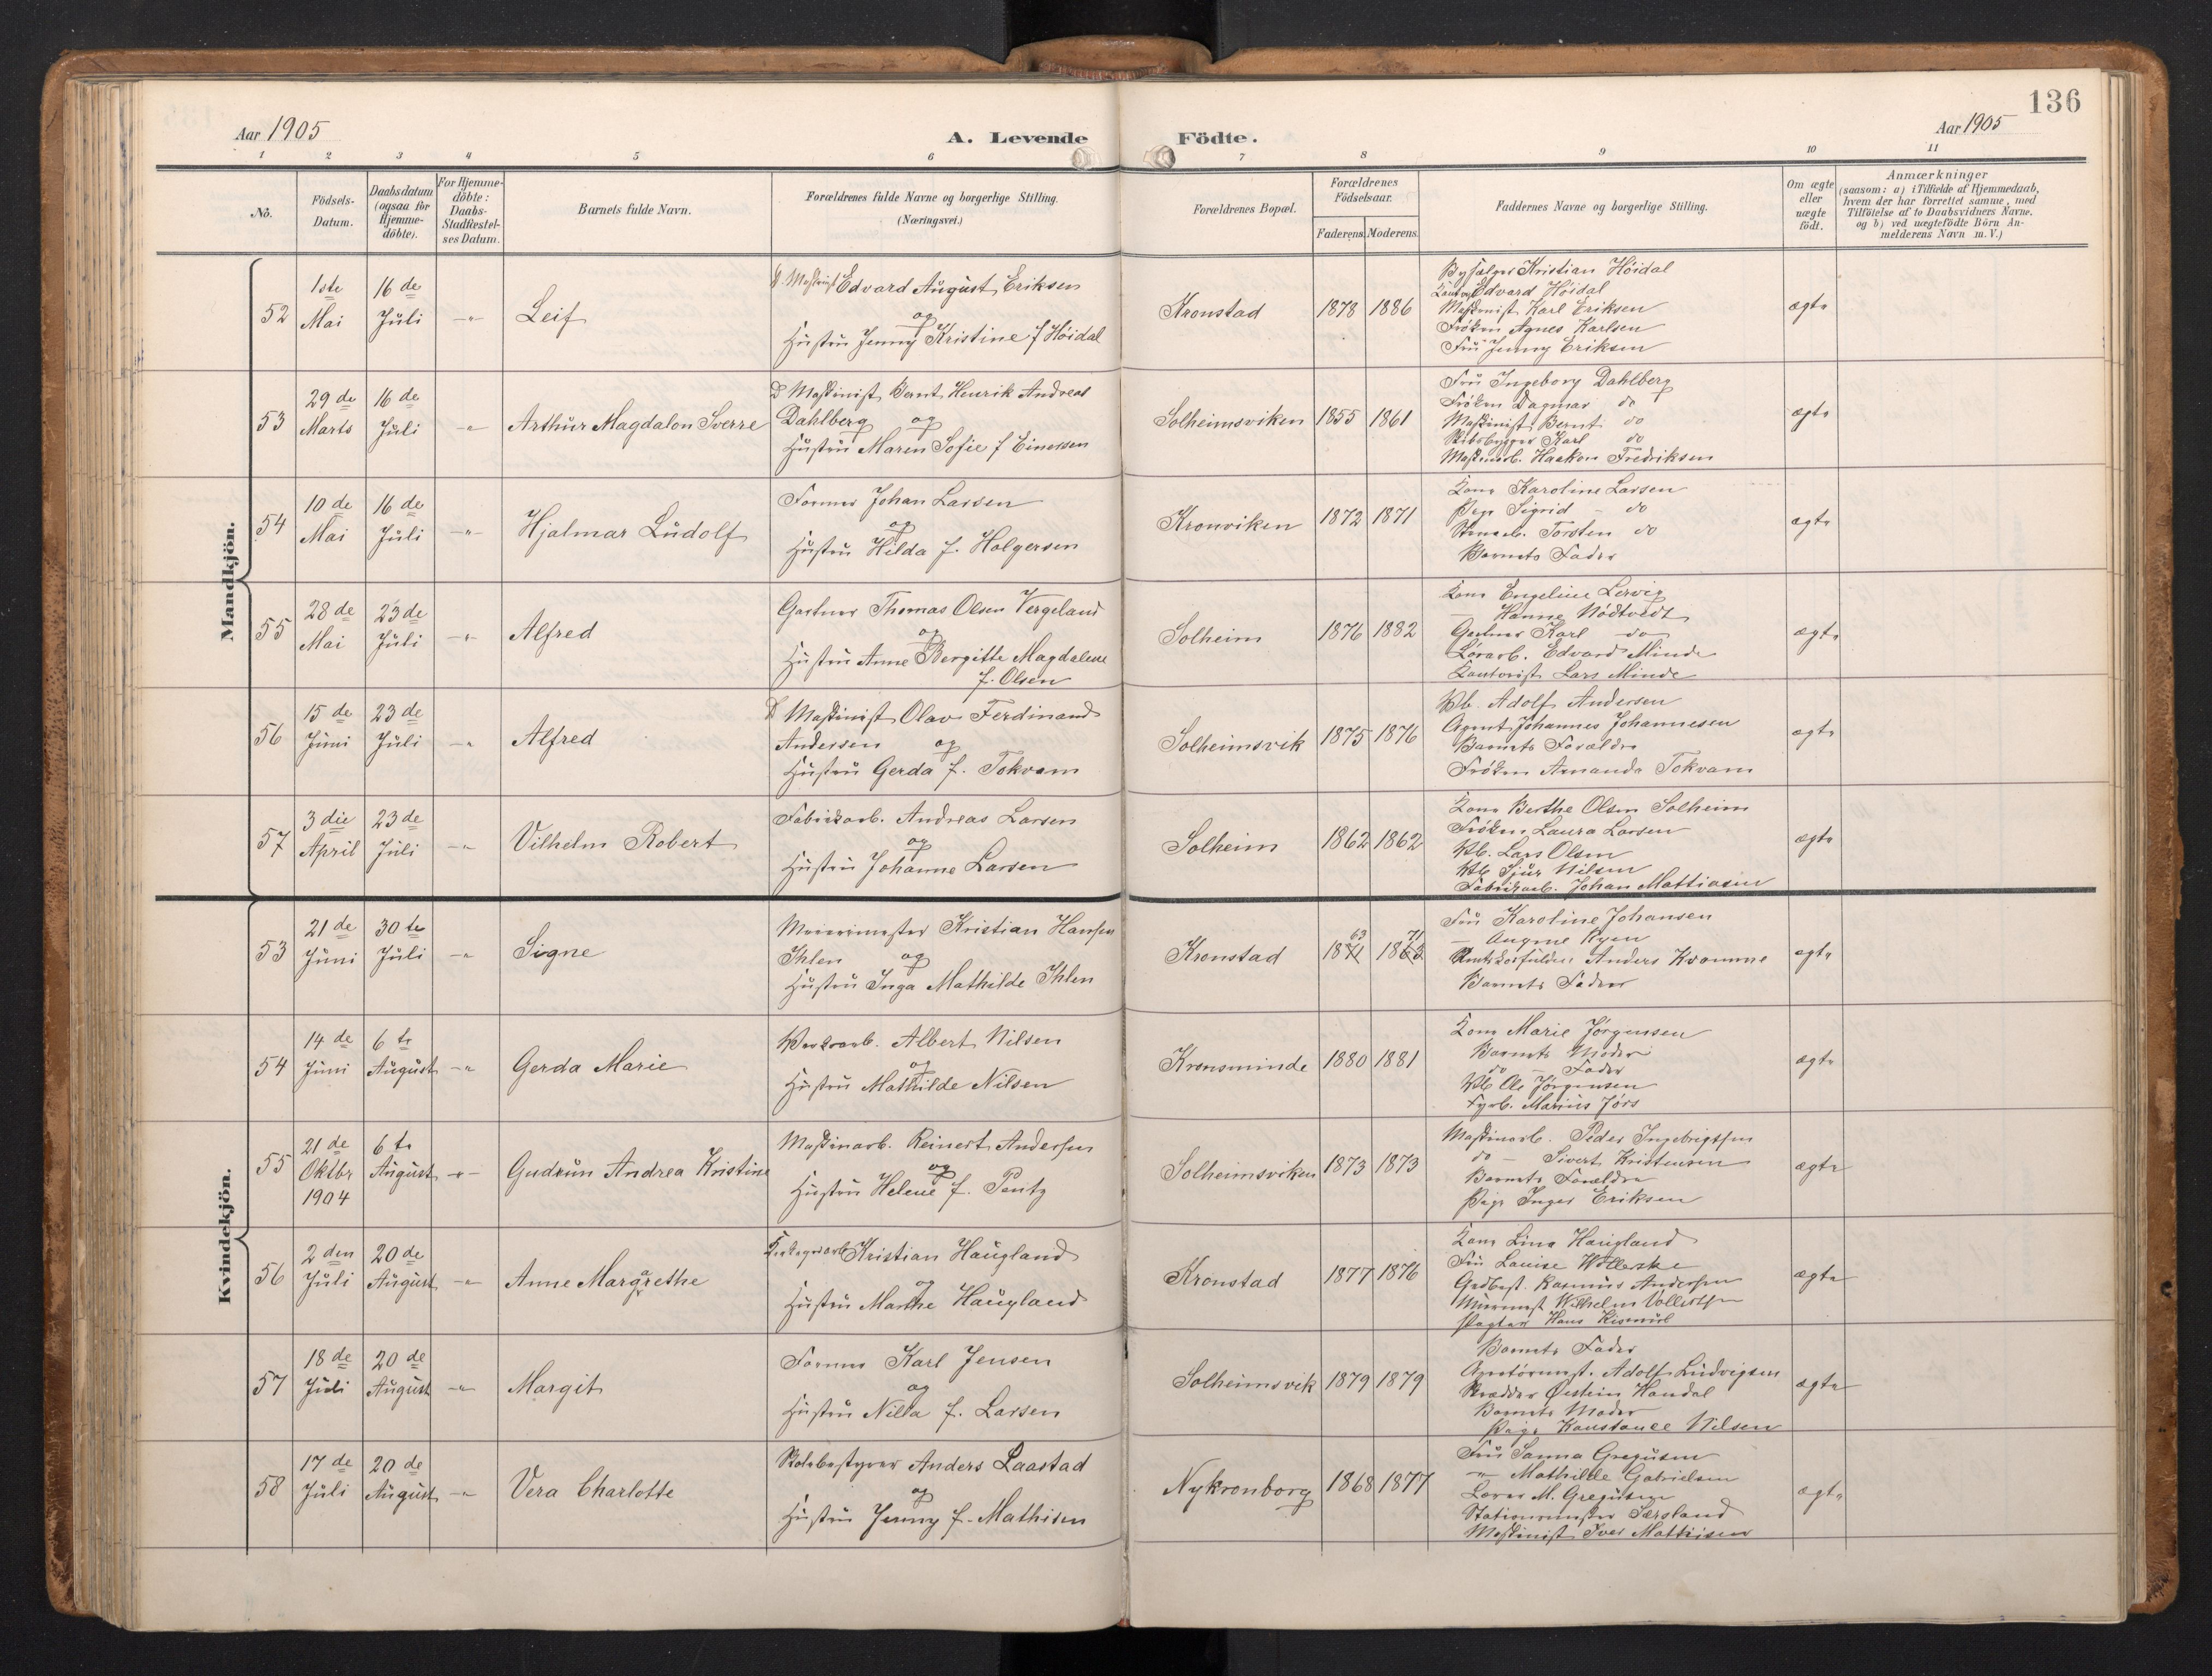 136
Aar 1905
A. Levende Födte.
Aar 1905
1 2 3 4 5 6 7 8 9 10 11
No.
Födsels-Datum.
Daabsdatum (ogsaa for Hjemme-döbte).
For Hjemme-döbte: Daabs-Stadfæstel-ses Datum.
Barnets fulde Navn.
Forældrenes fulde Navne og borgerlige Stilling.
(Næringsvei.)
Forældrenes Bopæl.
Forældrenes Födselsaar.
Faderens. Moderens.
Faddernes Navne og borgerlige Stilling.
Om ægte eller uægte födt.
Anmærkninger
(saasom: a) i Tilfælde af Hjemmedaab,
hvem der har forrettet samme, med
Tilföielse af to Daabsvidners Navne,
og b) ved uægtefödte Börn An-
melderens Navn m. V.)
Mandkjön.
52
1ste Mai
16 de Juli
Leif
Edvard August Eriksen
og
Hustru Jenny Kristine f Höidal
Kronstad
1878 1886
Kristian Höidal
Edvard Höidal
Maskinist Karl Eriksen
Fröken Agnes Karlsen
Fru Jenny Eriksen
ægte
53
29 de Marts
16 de Juli
Arthur Magdalon Sverre
Maskinist Bernt Henrik Andreas
Dahlberg og
Hustru Maren Sofie f Einersen
Solheimsviken
1855 1861
Fru Ingeborg Dahlberg
Fröken Dagmar do
Maskinist Bernt do
Skibsbygger Karl do
Maskinarb. Haakon Fredriksen
ægte
54
10 de Mai
16 de Juli
Hjalmar Ludolf
Former Johan Larsen
og
Hustru Hilda f. Holgersen
Kronviken
1872 1871
Kone Karoline Larsen
Pige Sigrid - do
Torsten do
Barnets Fader
ægte
55
28 de Mai
23 de Juli
Alfred
Gartner Thomas Olsen Vergeland
og
Hustru Anne Bergitte Magdalene
f. Olsen
Solheim
1876 1882
Kone Engeline Lervig
— Hanne Nödtvedt
Gartner Karl — do —
Edvard Minde
Kontorist Lars Minde
ægte
56
15 de Juni
23 de Juli
Alfred
Maskinist Olav Ferdinand
Andersen og
Hustru Gerda f. Tokvam
Solheimsvik
1875 1876
Adolf Andersen
Agent Johannes Johannesen
Barnets Forældre
Fröken Amanda Tokvam
ægte
57
3 die April
23 de Juli
Vilhelm Robert
Fabrikarb. Andreas Larsen
og
Hustru Johanne Larsen
Solheim
1862 1862
Kone Berthe Olsen Solheim
Fröken Laura Larsen
Lars Olsen
Sjur Nilsen
Fabrikarb. Johan Mattiasen
ægte
Kvindekjön.
53
21 de Juni
30 te Juli
Signe
Meierimester Kristian Hansen
Ihlen og
Hustru Inga Mathilde Ihlen
Kronstad
63 71
1871 1863
Fru Karoline Johansen
Anders Kvamme
Barnets Fader
ægte
54
14 de Juni
6 te August
Gerda Marie
Albert Nilsen
og
Hustru Mathilde Nilsen
Kronsminde
1880 1881
Kone Marie Jörgensen
Barnets Moder
do — Fader
Ole Jörgensen
Fyrb. Marius Jörs
ægte
55
21 de Oktbr 1904
6 te August
Gudrun Andrea Kristine
Maskinarb. Reinert Andersen
og
Hustru Helene f. Pentz
Solheimsviken
1873 1873
Maskinarb. Peder Ingebrigtsen
do — Sivert Kristensen
Barnets Forældre
Pige Inger Eriksen
ægte
56
2 den Juli
20 de August
Anne Margrethe
Kristian Haugland
og
Hustru Marthe Haugland
Kronstad
1877 1876
Kone Lina Haugland
Fru Louise
Rasmus Andersen
Murmest Wilhelm
Hans
ægte
57
18 de Juli
20 de August
Margit
Former Karl Jensen
og
Hustru Nilla f. Larsen
Solheimsvik
1879 1879
Barnets Fader
Adolf Ludvigsen
Skrædder Östein Handal
Barnets Moder
Pige Konstance Nilsen
ægte
58
17 de Juli
20 de August
Vera Charlotte
Skolebestyrer Anders Laastad
og
Hustru Jenny f. Mathisen
Nykronborg
1868 1877
Fru Sanna Gregusen
— Mathilde Gabrielsen
Lærer M. Gregusen
Stationsmester
Maskinist Iver Mathisen
ægte